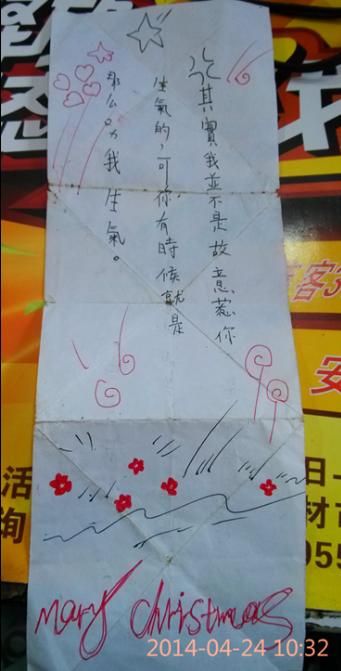 其實我並不是故意惹你
生氣的，可你有時候就是
那么叫我生氣。
Mary christmas
2014-04-24 10:32
客3
安
活
詢
日-
材市
055